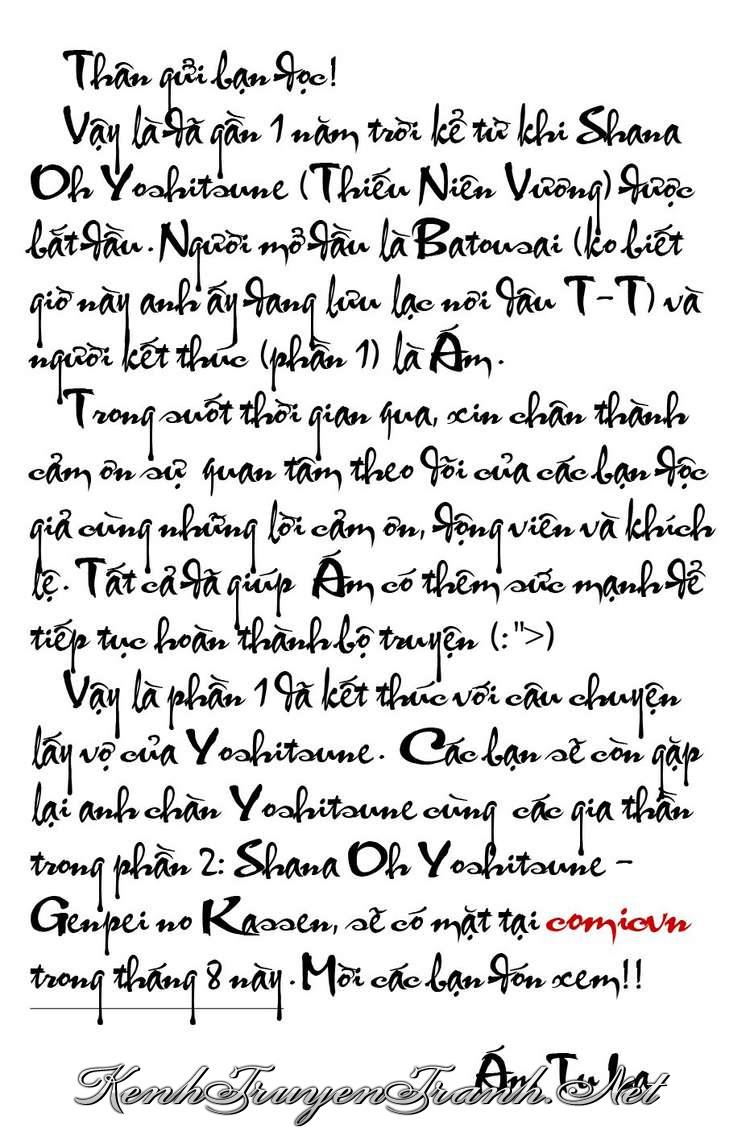 Thân gửi bạn đọc!
Vậy là đã gần 1 năm trời kể từ khi Shana
Oh Yoshitsune (Thiếu Niên Vương) được
bắt đầu. Người mở đầu là Batousai (ko biết
giờ này anh ấy đang lưu lạc nơi đâu T-T) và
người kết thúc (phần 1) là Ấm.
Trong suốt thời gian qua, xin chân thành
cảm ơn sự quan tâm theo dõi của các bạn độc
giả cùng những lời cảm ơn, động viên và khích
lệ. Tất cả đã giúp Ấm có thêm sức mạnh để
tiếp tục hoàn thành bộ truyện (:">)
Vậy là phần 1 đã kết thúc với câu chuyện
lấy vợ của Yoshitsune. Các bạn sẽ còn gặp
lại anh chàn Yoshitsune cùng các gia thần
trong phần 2: Shana Oh Yoshitsune -
Genpei no Kassen, sẽ có mặt tại comicvn
trong tháng 8 này. Mời các bạn đón xem!!
Ấm Tu La
KenhTruyenTranh.Net